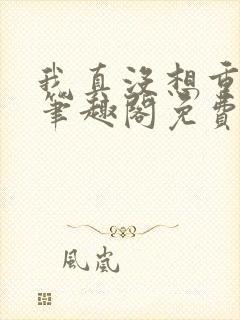 我真没想重
笔趣阁免费
風嵐